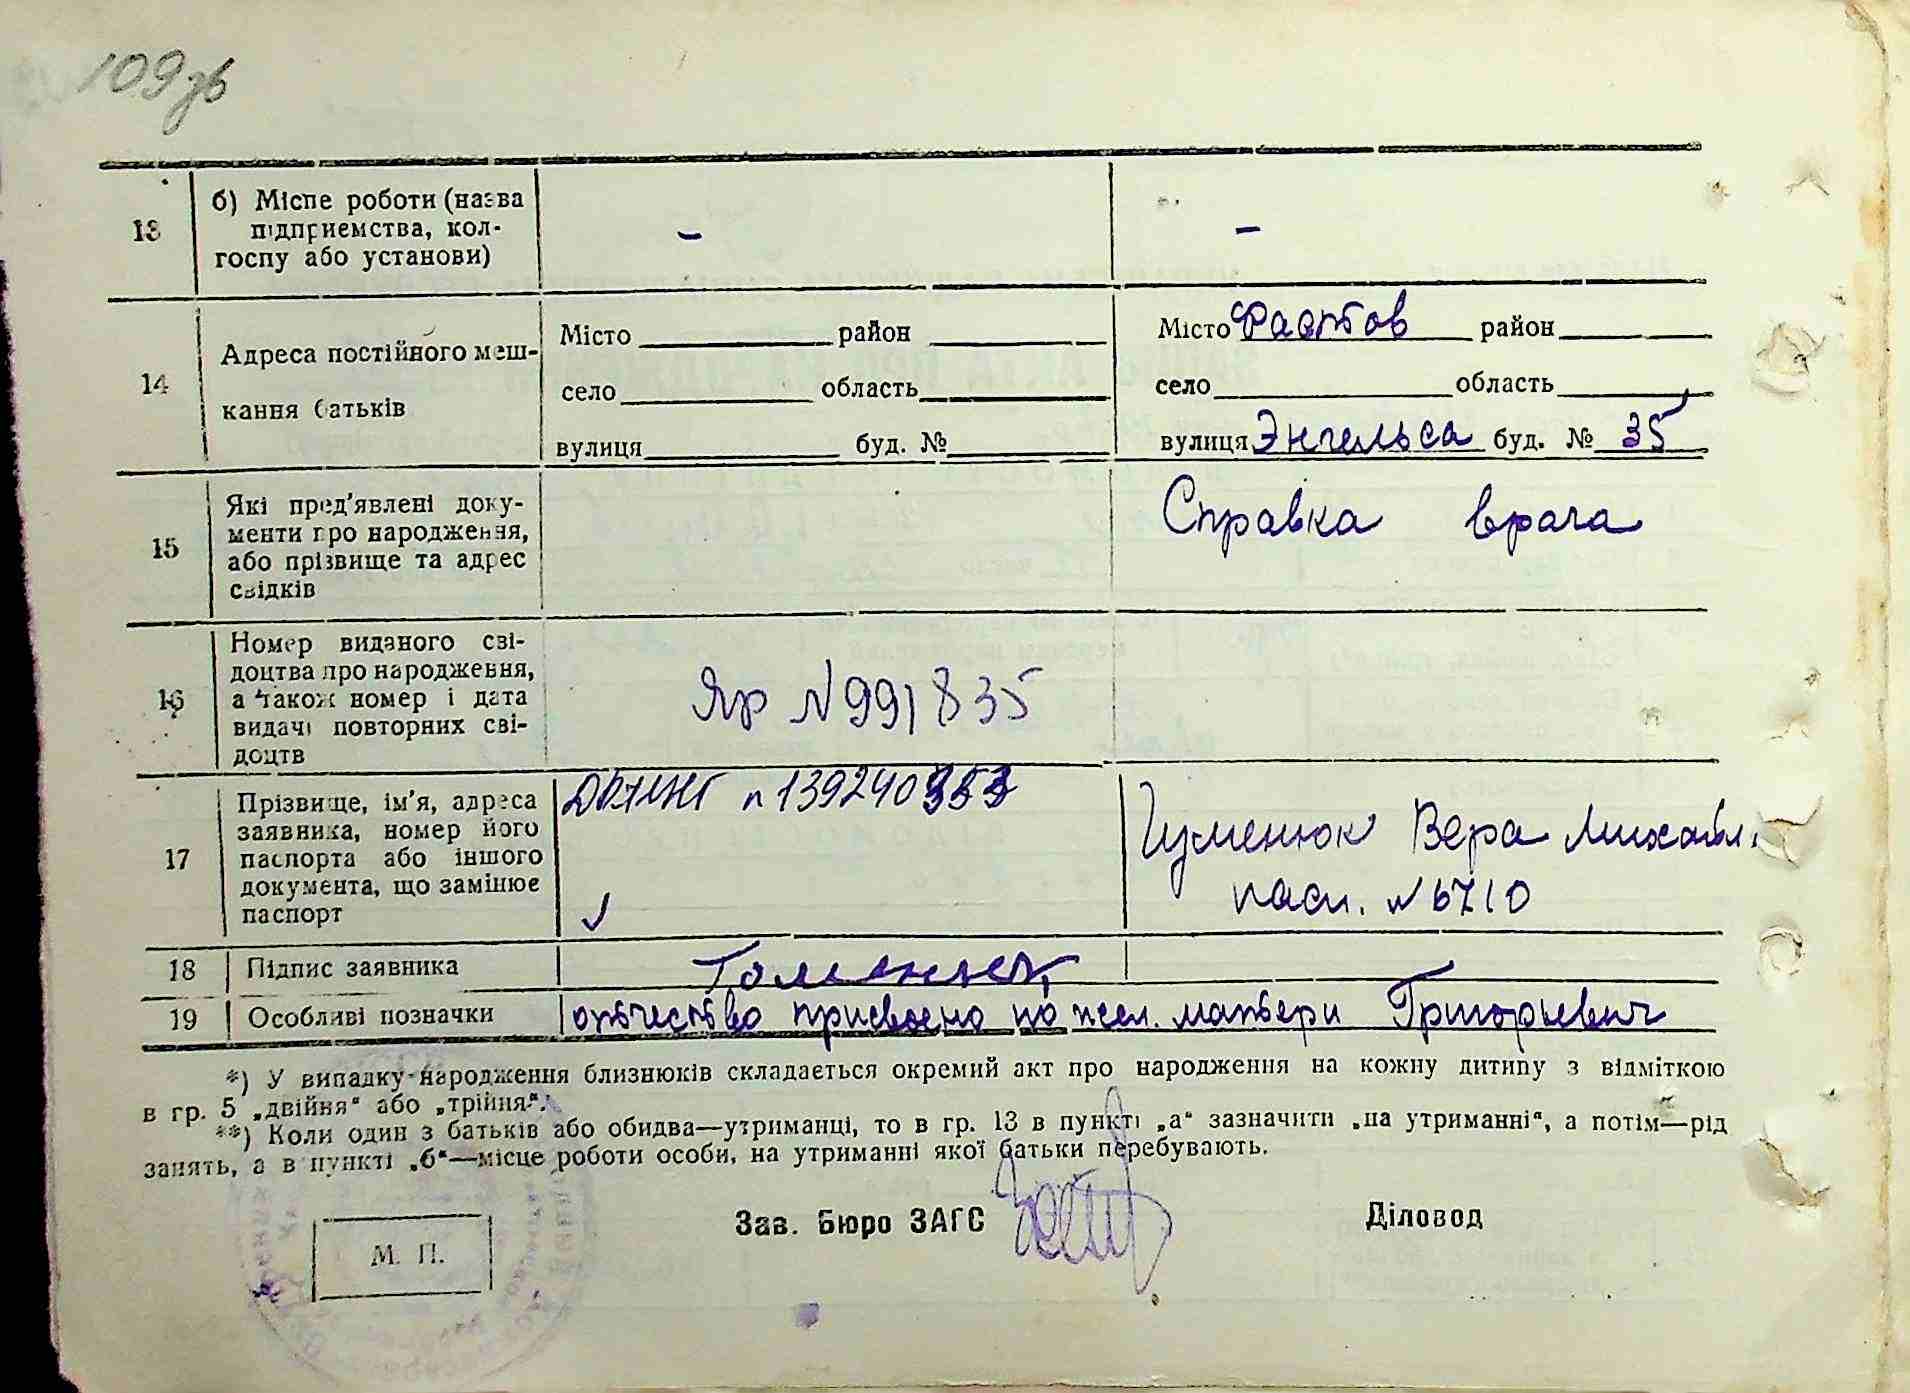 109зв
13 б) Місце роботи (назва підприемства, колгоспу або установи) – –
14 Адреса постійного мешкання батьків
Місто район Місто Фастов район
село область село область
вулиця буд. № вулиця Энгельса буд. № 35
15 Які пред'явлені документи про народження, або прізвище та адрес свідків
Справка врача
16 Номер виданого свідоцтва про народження, а також номер і дата видачі повторних свідоцтв
ЯР N 991835
17 Прізвище, ім'я, адреса заявника, номер його паспорта або іншого документа, що замінює паспорт
139240353
Гуменюк Вера Михайл.
пасп. N 6710
18 Підпис заявника
19 Особливі позначки отчество присвоено по жел. матери Григорьевич
*) У випадку народження близнюків складається окремий акт про народження на кожну дитину з відміткою
в гр. 5 „двійня“ або „трійня“.
**) Коли один з батьків або обидва—утриманці, то в гр. 13 в пункті „а“ зазначити „на утриманні“, а потім—рід
занять, а в пункті „б“—місце роботи особи, на утриманні якої батьки перебувають.
Зав. Бюро ЗАГС Діловод
М. П.